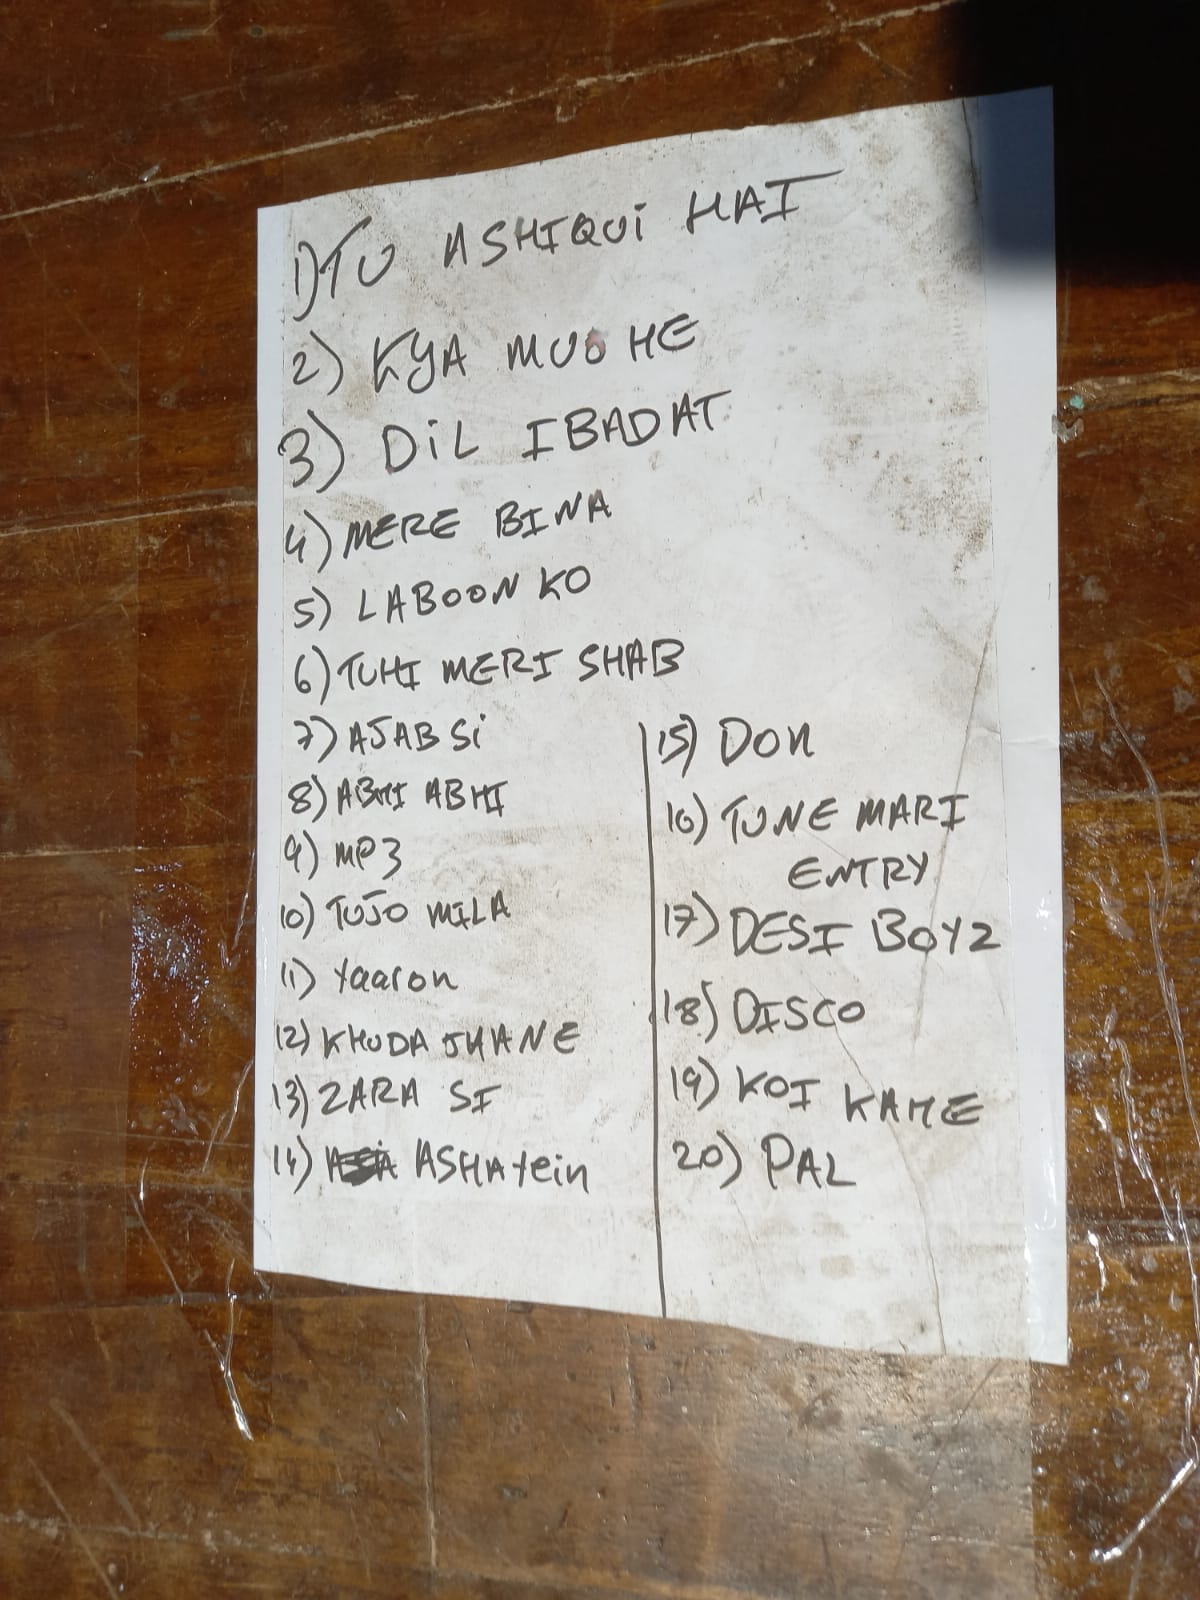 1) TU ASHIQUi HAI
2) KYA HE
3) DiL IBADAT
4) MERE BINA
5) LABOON KO
6) TUHI MERI SHAB
7) AJAB Si
8) ABHI ABHI
9) MP3
10) TUJO MILA
11) Yaaron
12) KHUDA JHANE
13) ZARA SI
14) ASHAYein
15) DON
16) TUNE MARI
ENTRY
17) DESI BOYZ
18) DISCO
19) KOI KAHE
20) PAL